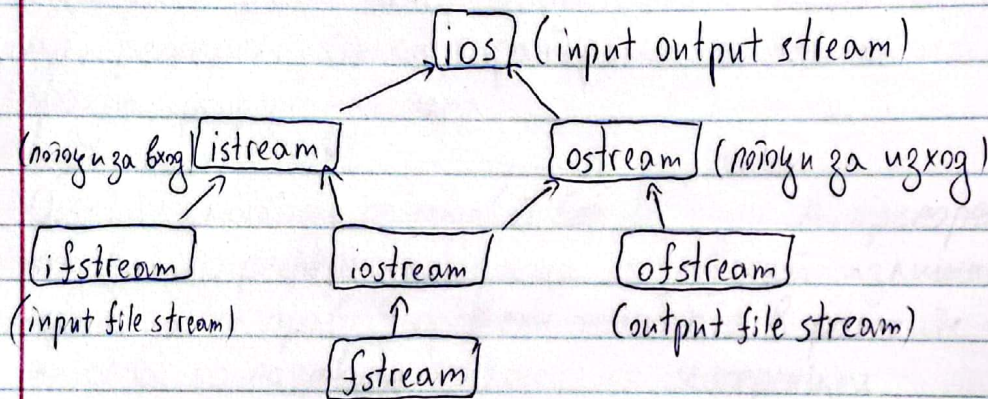 ios (input output stream)
(потоци за вход) istream ostream (потоци за изход)
ifstream iostream ofstream
(input file stream) (output file stream)
fstream